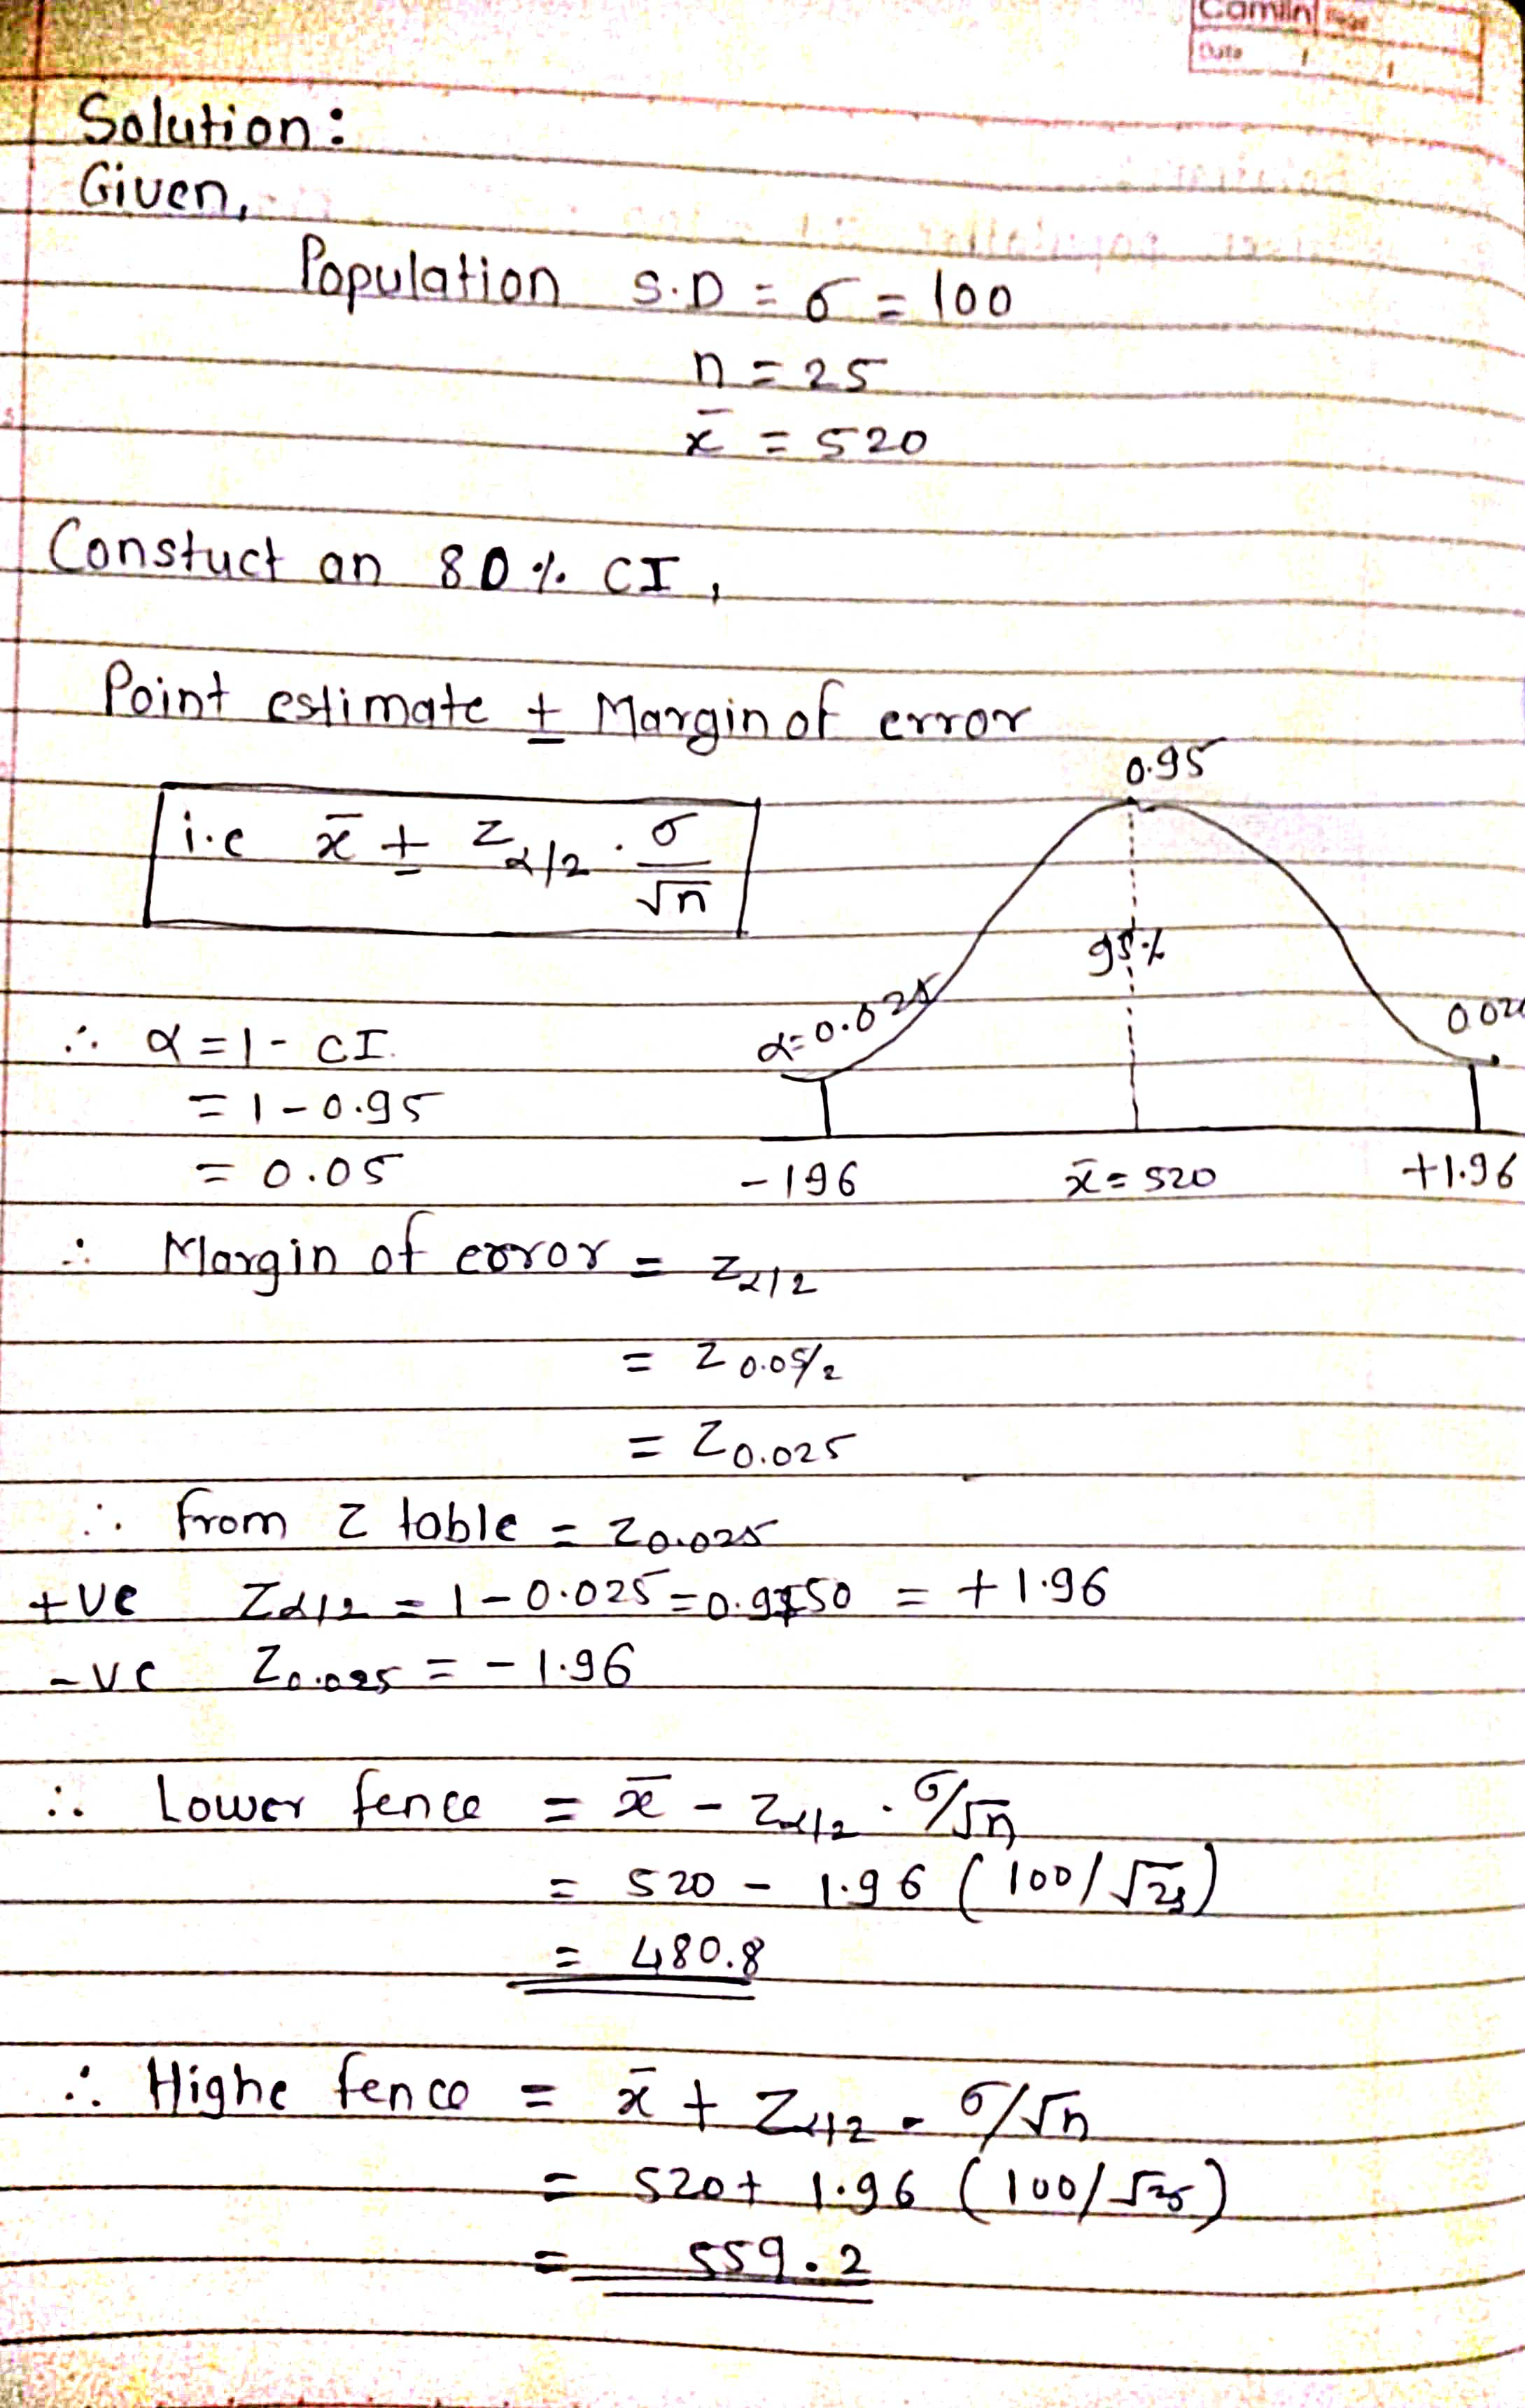 Camlin Page
Date / /
Solution:
Given,
Population S.D = σ = 100
n = 25
x̄ = 520
Constuct an 80% CI,
Point estimate ± Margin of error
0.95
i.e x̄ ± Zα/2 . σ/√n
95%
α=0.025
∴ α = 1 - CI.
= 1 - 0.95
= 0.05
-196 x̄ = 520 +1.96
∴ Margin of error = Zα/2
= Z0.05/2
= Z0.025
∴ from Z table = Z0.025
+ve Zα/2 = 1 - 0.025 = 0.9750 = +1.96
-ve Z0.025 = -1.96
∴ Lower fence = x̄ - Zα/2 . σ/√n
= 520 - 1.96 (100/√25)
= 480.8
∴ Highe fence = x̄ + Zα/2 . σ/√n
= 520 + 1.96 (100/√25)
= 559.2